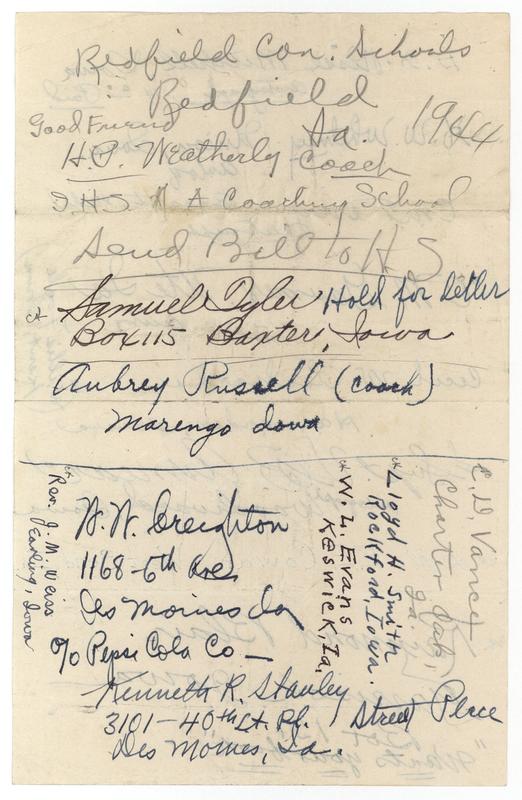 Redfield Con. Schools
Redfield
Ia. 1944
Good Friend
H.P. Weatherly Coach
I.H.S. A A Coaching School
Send Bill to H S
ck Samuel Tyler Hold for Letter
Box 115 Baxter, Iowa
Aubrey Russell (coach)
Marengo Iowa
ck
Rev. J. M. Weiss
Earling, Iowa
W. W. Creighton
1168-6th Ave
Des Moines Ia
c/o Pepsi Cola Co —
Kenneth R. Stanley
3101-40th St. Pl. Street Place
Des Moines, Ia.
ck W. L. Evans
Keswick, Ia.
ck Lloyd H. Smith
Rockford, Iowa.
E. D. Vance
Charter Oak,
Ia